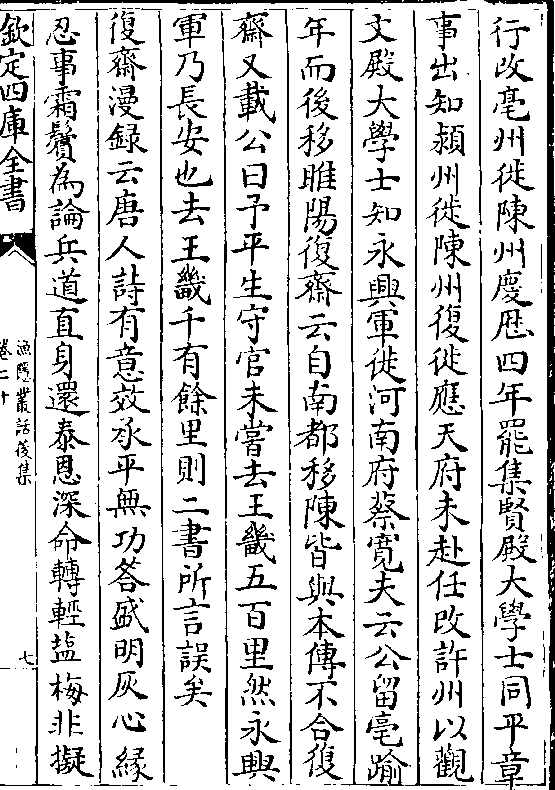 行改亳州徙陳州慶厯四年罷集賢殿大學士同平章
事出知潁州徙陳州復徙應天府未赴任改許州以觀
文殿大學士知永興軍徙河南府蔡寛夫云公留亳踰
年而後移睢陽復齋云自南都移陳皆與本傳不合復
齋又載公曰予平生守官未嘗去王畿五百里然永興
軍乃長安也去王畿千有餘里則二書所言誤矣
復齋漫録云唐人詩有意效承平無功答盛明灰心緣
忍事霜鬢為論兵道直身還泰恩深命轉輕盐梅非擬
欽定四庫全書
漁隱叢話後集
卷二十
七